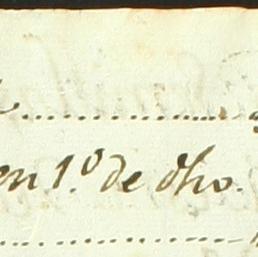 en 1.º de dho.